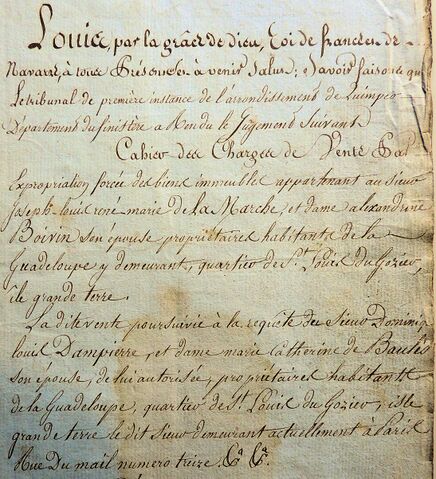 Louis, par la grâce de dieu, Roi de france et de
Navarre, à tous Présens et à venir Salut; Savoir faisons que
Le tribunal de première instance de l'arrondissement de Quimper
Département du finistère a Rendu le Jugement Suivant
Cahier des Charges de Vente Par
Expropriation forcée des biens immeubles appartenant au sieur
Joseph Louis rené marie de la Marche, et dame alexandrine
Boivin son épouse propriétaires habitants de la
Guadeloupe y demeurant, quartier de St. Louis du Gozier,
ile grande terre.
La dite vente poursuivie à la requête du Sieur Dominiq
Louis Dampierre, et dame marie Catherine de Baulès
son épouse, de lui autorisée, propriétaires habitants
de la Guadeloupe, quartier de St. Louis du Gozier, isle
grande terre le dit Sieur demeurant actuellement à Paris
Rue Du mail numero treize. &a &a.